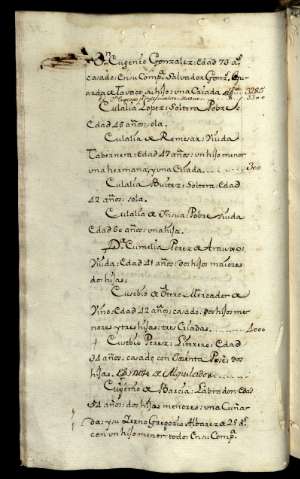 Dn. Eugenio Gonzalez: Edad 70 as.
casado: En su Compa. Salvador Gonz.
de Tavaco, su hijo: una Criada 3285
Eulalia Lopez: Soltera Pobre:
Edad 45 años: sola.
Eulalia de Remesar: Viuda
Tabernera: Edad 47 años: un hijo menor
una hermana, y una Criada. 300
Eulalia Buitez: Soltera: Edad
42 años: sola.
Eulalia de Pobre Viuda
Edad 60 años: una hija.
Da. Eumelia Perez de Araujo:
Viuda: Edad 41 años: dos hijos maiores
dos hijas:
Eusebio de Otero Mercader de
Vino: Edad 42 años: casado: dos hijos me-
nores y tres hijas: tres Criadas. 4000
Eusebio Perez: Librero: Edad
34 años: casado con Perez: dos
hijas.
Eugenio de Barcia: Labrador: Edad
54 años: dos hijos menores: una Cuña-
da: y su Yerno Gregorio Albarez de 25 as.
con un hijo menor todo: En su Compa.